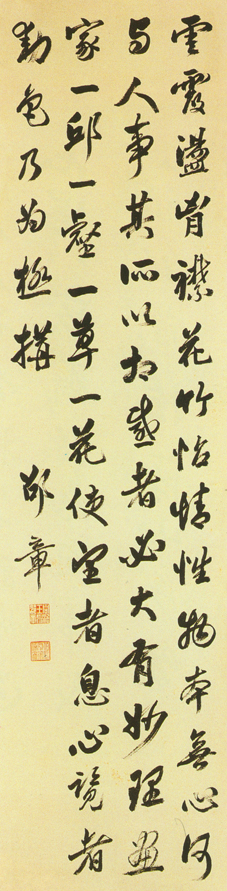 雲霞盪胷襟花竹怡情性物本無心何
与人事其所以相感者必大有妙理畫
家一邱一壑一草一花使望者息心覽者
動色乃為極搆
邵章